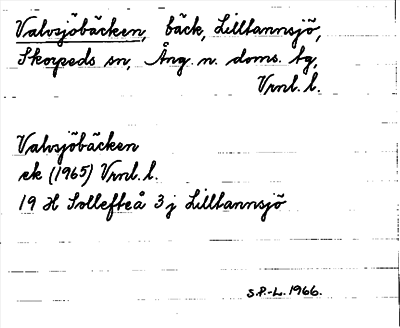 Valvsjöbäcken, bäck, Lilltannsjö,
Skorpeds sn, Ång. n. doms. tg,
Vrnl. l.
Valvsjöbäcken
ek (1965) Vrnl. l.
19 H Sollefteå 3 j Lilltannsjö
S.P.-L. 1966.